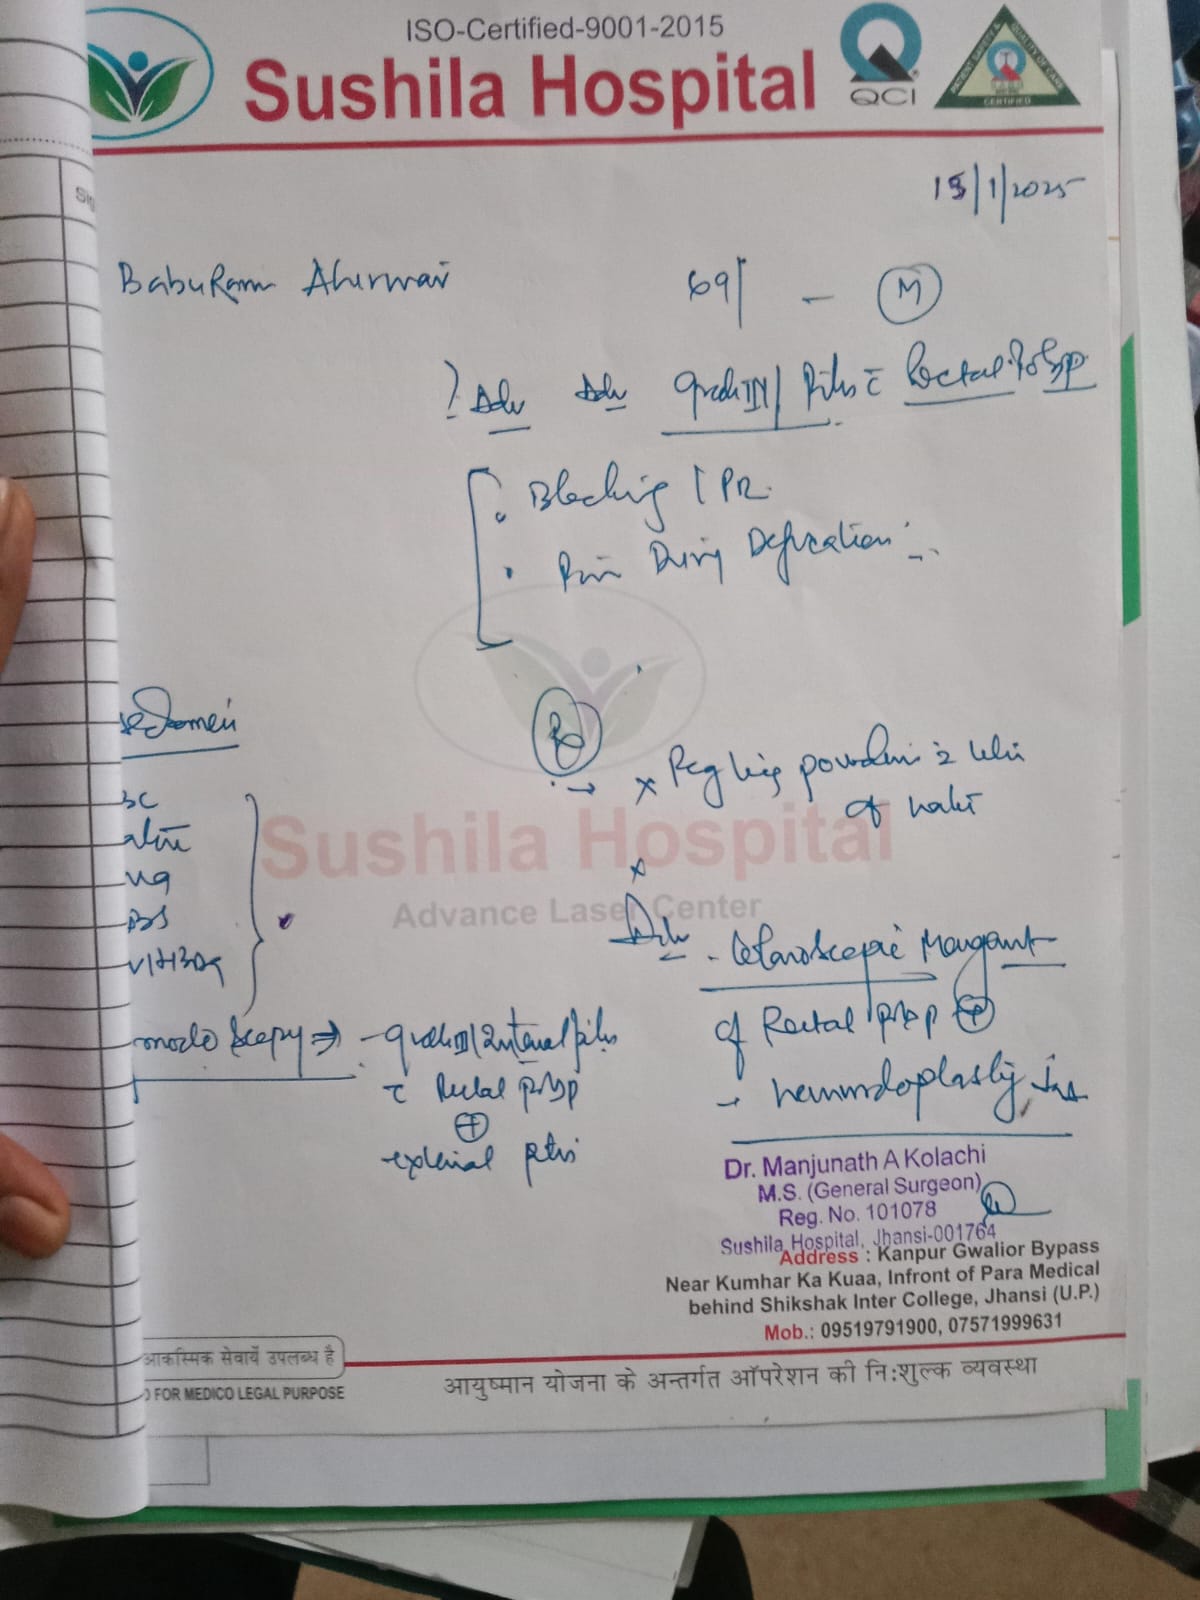 ISO-Certified-9001-2015
Sushila Hospital
QCI
PATIENT SAFETY & QUALITY OF CARE
CERTIFIED
Sig
15/1/2025
BabuRam Ahirwar 69/ - M
? Adv Adv Grade III/ Piles c̄ Rectal Prolap
Bleeding / PR.
Pain During Defecation
Rx
Peg powder c̄ of water
BC
VIHBsg
Sushila Hospital
Advance Laser Center
Adv - Laparoscopic Mangant
of Rectal prolap +
- hemorrdoplasty
scopy ⇒ - grade III/ Internal piles
c̄ Rectal prolap
+
external piles
Dr. Manjunath A Kolachi
M.S. (General Surgeon)
Reg. No. 101078
Sushila Hospital, Jhansi-001764
Address : Kanpur Gwalior Bypass
Near Kumhar Ka Kuaa, Infront of Para Medical
behind Shikshak Inter College, Jhansi (U.P.)
Mob.: 09519791900, 07571999631
आकस्मिक सेवायें उपलब्ध है
FOR MEDICO LEGAL PURPOSE
आयुष्मान योजना के अन्तर्गत ऑपरेशन की नि:शुल्क व्यवस्था